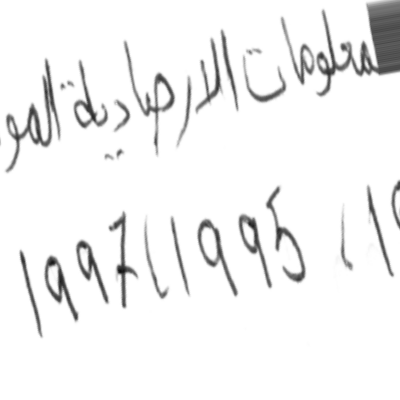 معلومات الارصادية المو
19 ، 1995 ، 1997